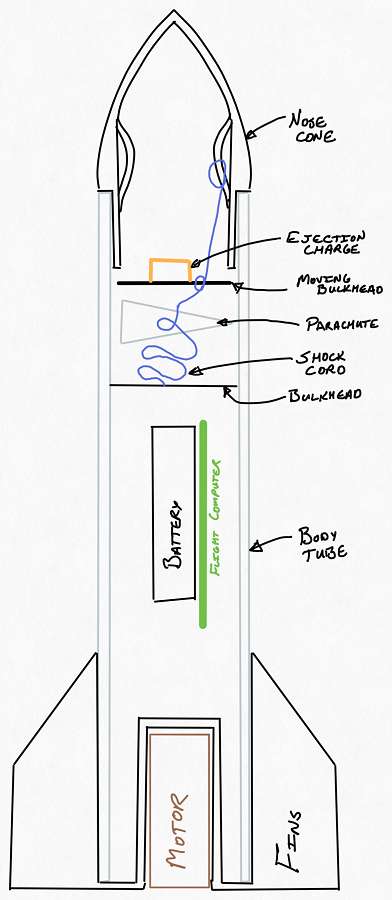 NOSE
CONE
EJECTION
CHARGE
MOVING
BULKHEAD
PARACHUTE
SHOCK
CORD
BULKHEAD
BATTERY
FLIGHT COMPUTER
BODY
TUBE
MOTOR
FINS